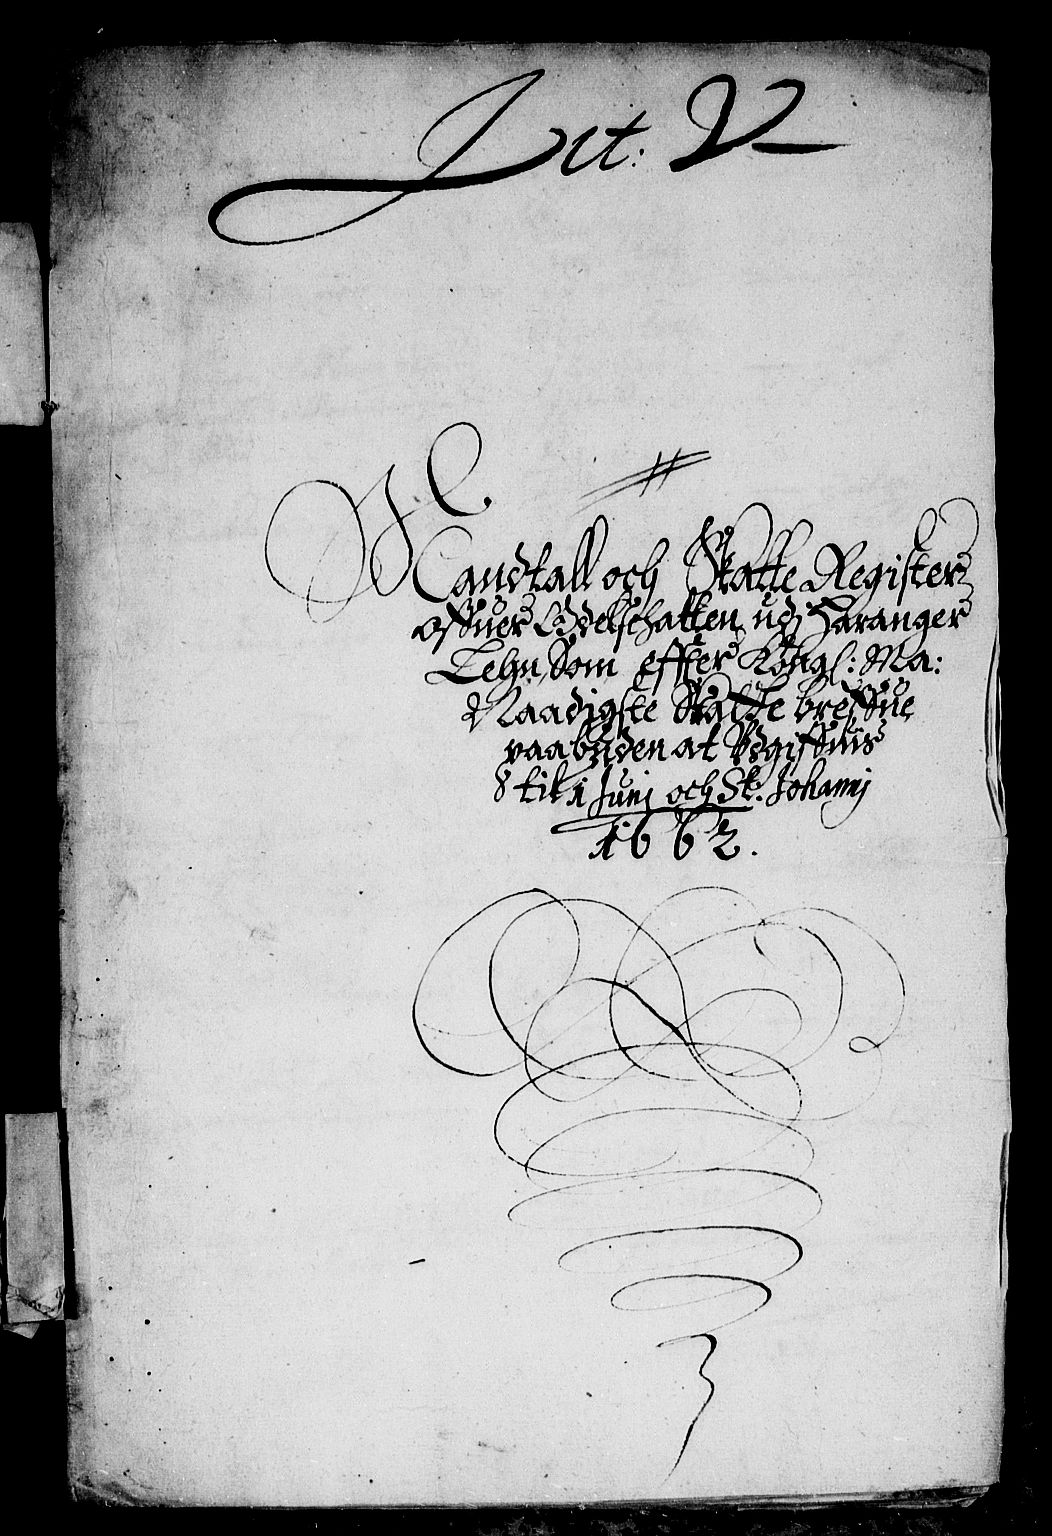 Lit: V
Mandtall och Skatte Register
offuer Odelschatten udj Haranger
Lehn, Som effter Kongl: Ma:
Naadigste Skatte breffue
paabuden at Udgiffuis
till 1 Junj och St: Johannj
1662.